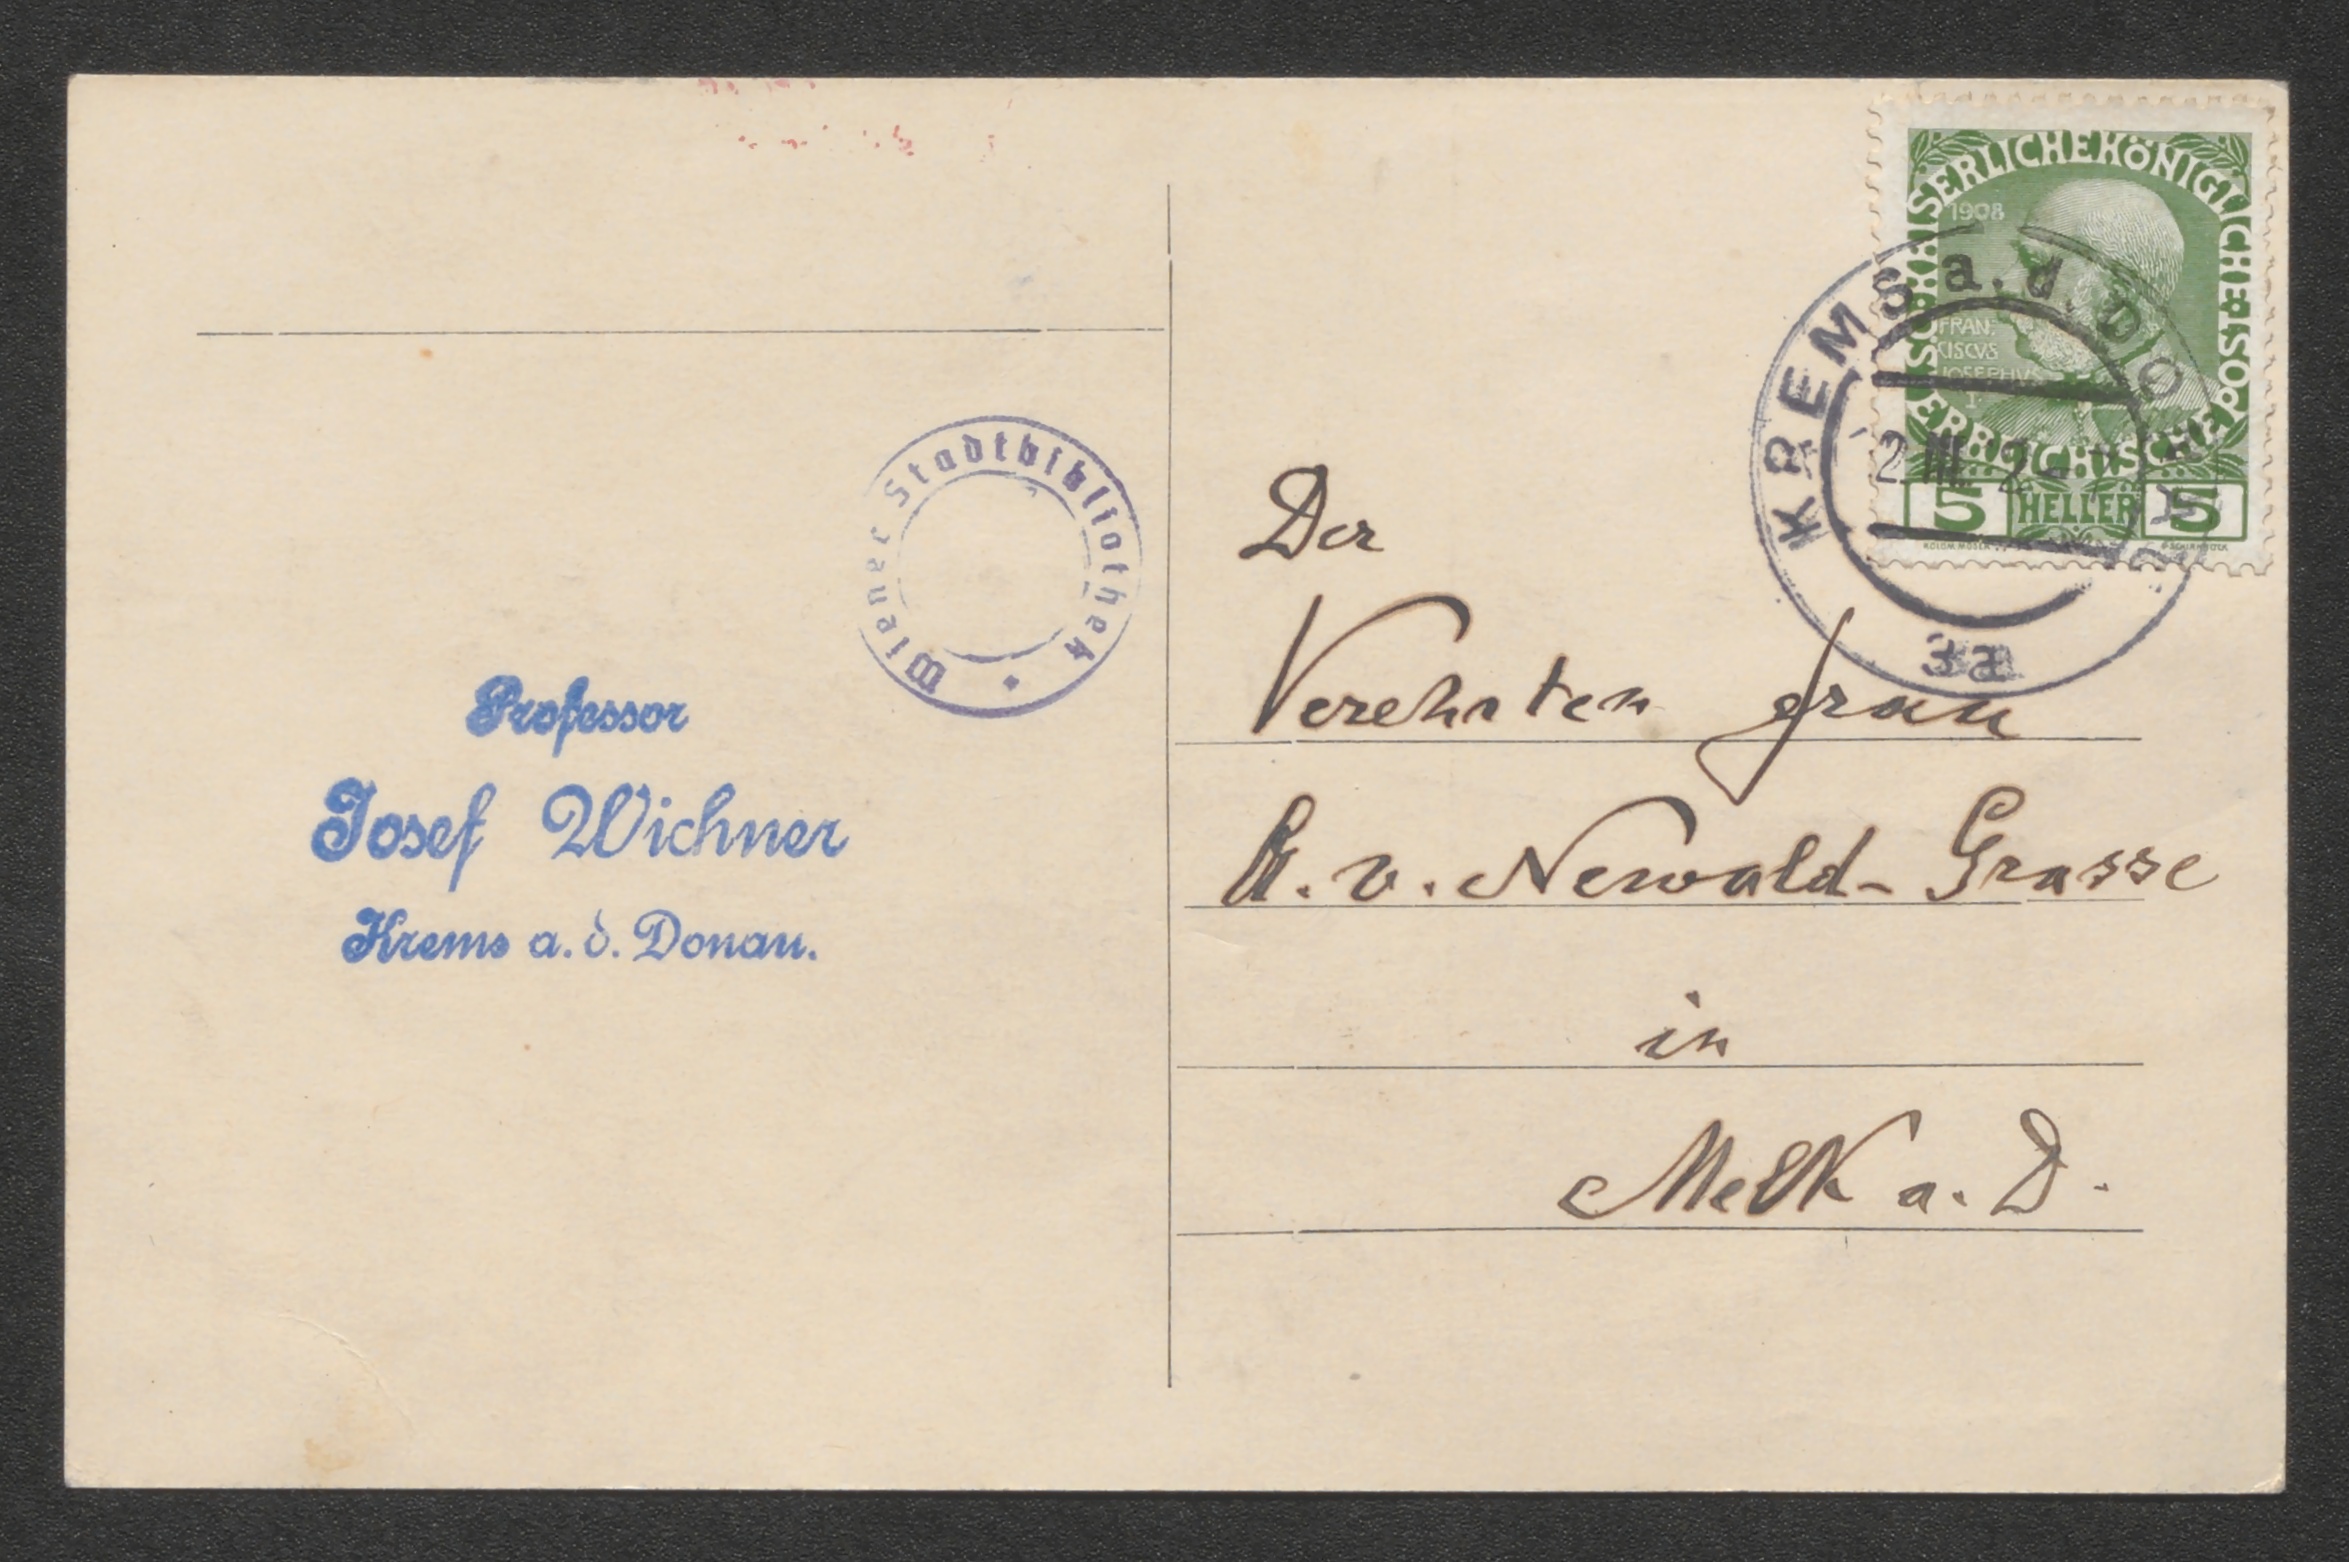 Wiener Stadtbibliothek
Professor
Josef Wichner
Krems a. d. Donau.
KAISERLICHE KÖNIGLICHE ÖSTERREICHISCHE POST
1908
FRAN=
CISCVS
JOSEPHVS
I
5 HELLER 5
KREMS a. d. DONAU
3a
Der
Verehrten Frau
v. Newald-Grasse
in
Melk a. D.